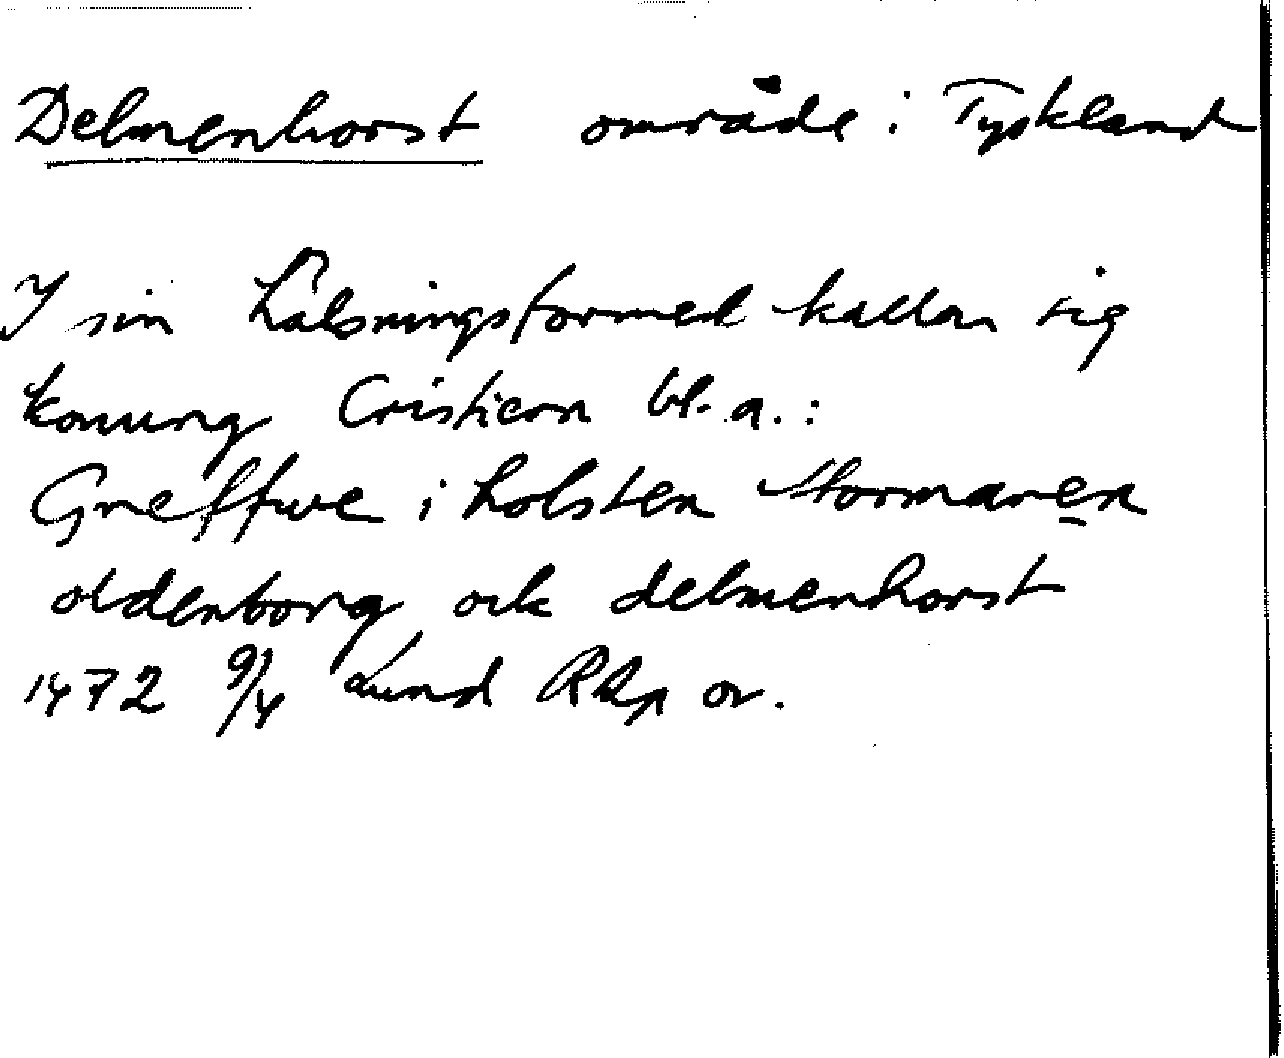 Delmenhorst område i Tyskland
I sin hälsningsformel kallar sig
konung Cristiern bl.a.:
Greffwe i holsten stormaren
oldenborg ock delmenhorst
1472 9/4 Lund RAp or.